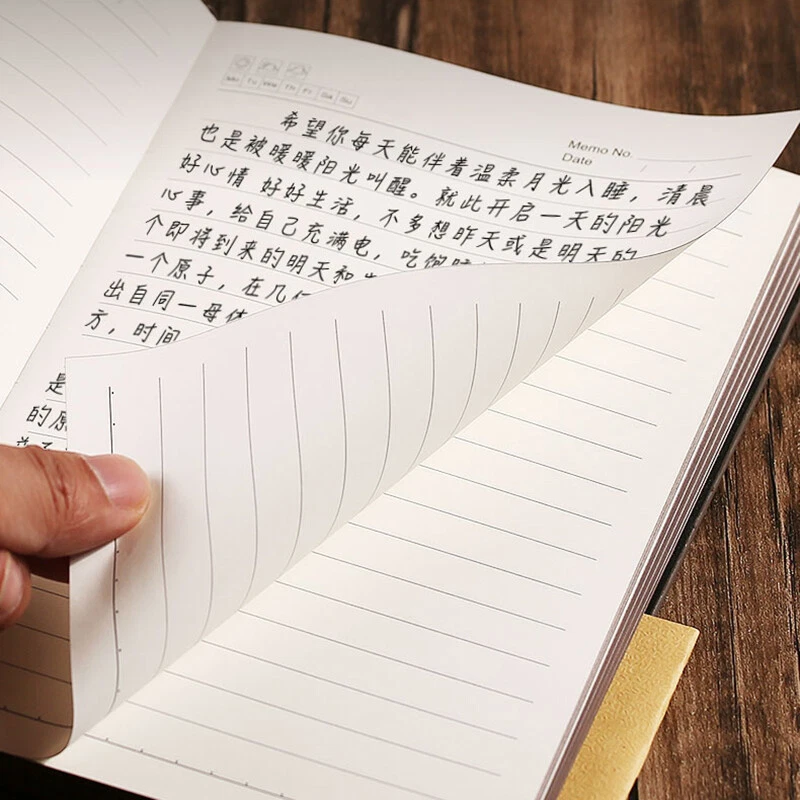 Mo Tu We Th Fr Sa Su
Memo No.
Date / /
希望你每天能伴着温柔月光入睡，清晨
也是被暖暖阳光叫醒。就此开启一天的阳光
好心情 好好生活，不多想昨天或是明天的
心事，给自己充满电，吃饱睡
个即将到来的明天和
一个原子，在几
出自同一母体
方，时间
是
的原